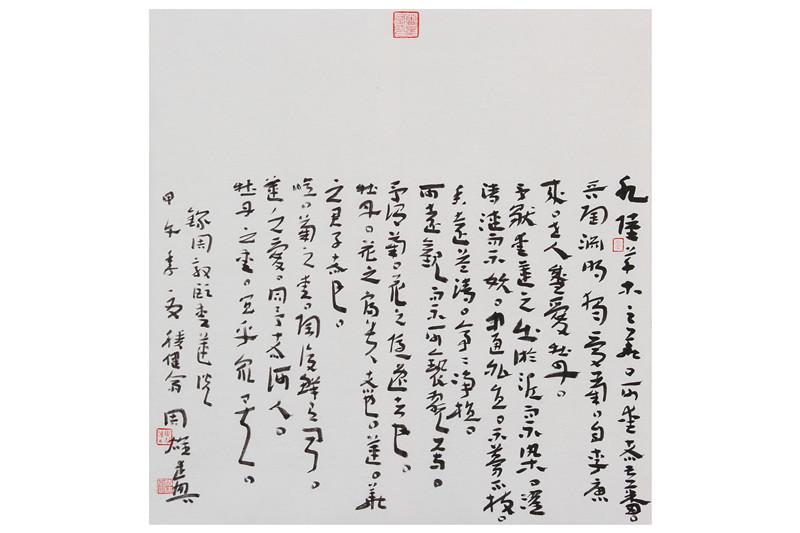 水陸草木之花。可愛者甚蕃。
晉陶淵明獨愛菊。自李唐
來。世人盛愛牡丹。
予獨愛蓮之出淤泥而不染。濯
清漣而不妖。中通外直。不蔓不枝。
香遠益清。亭亭淨植。
可遠觀而不可褻翫焉。
予謂菊。花之隱逸者也。
牡丹。花之富貴者也。蓮。花
之君子者也。
噫。菊之愛。陶後鮮有聞。
蓮之愛。同予者何人。
牡丹之愛。宜乎眾矣。
錄周敦頤愛蓮說
甲午季夏健翁周雄